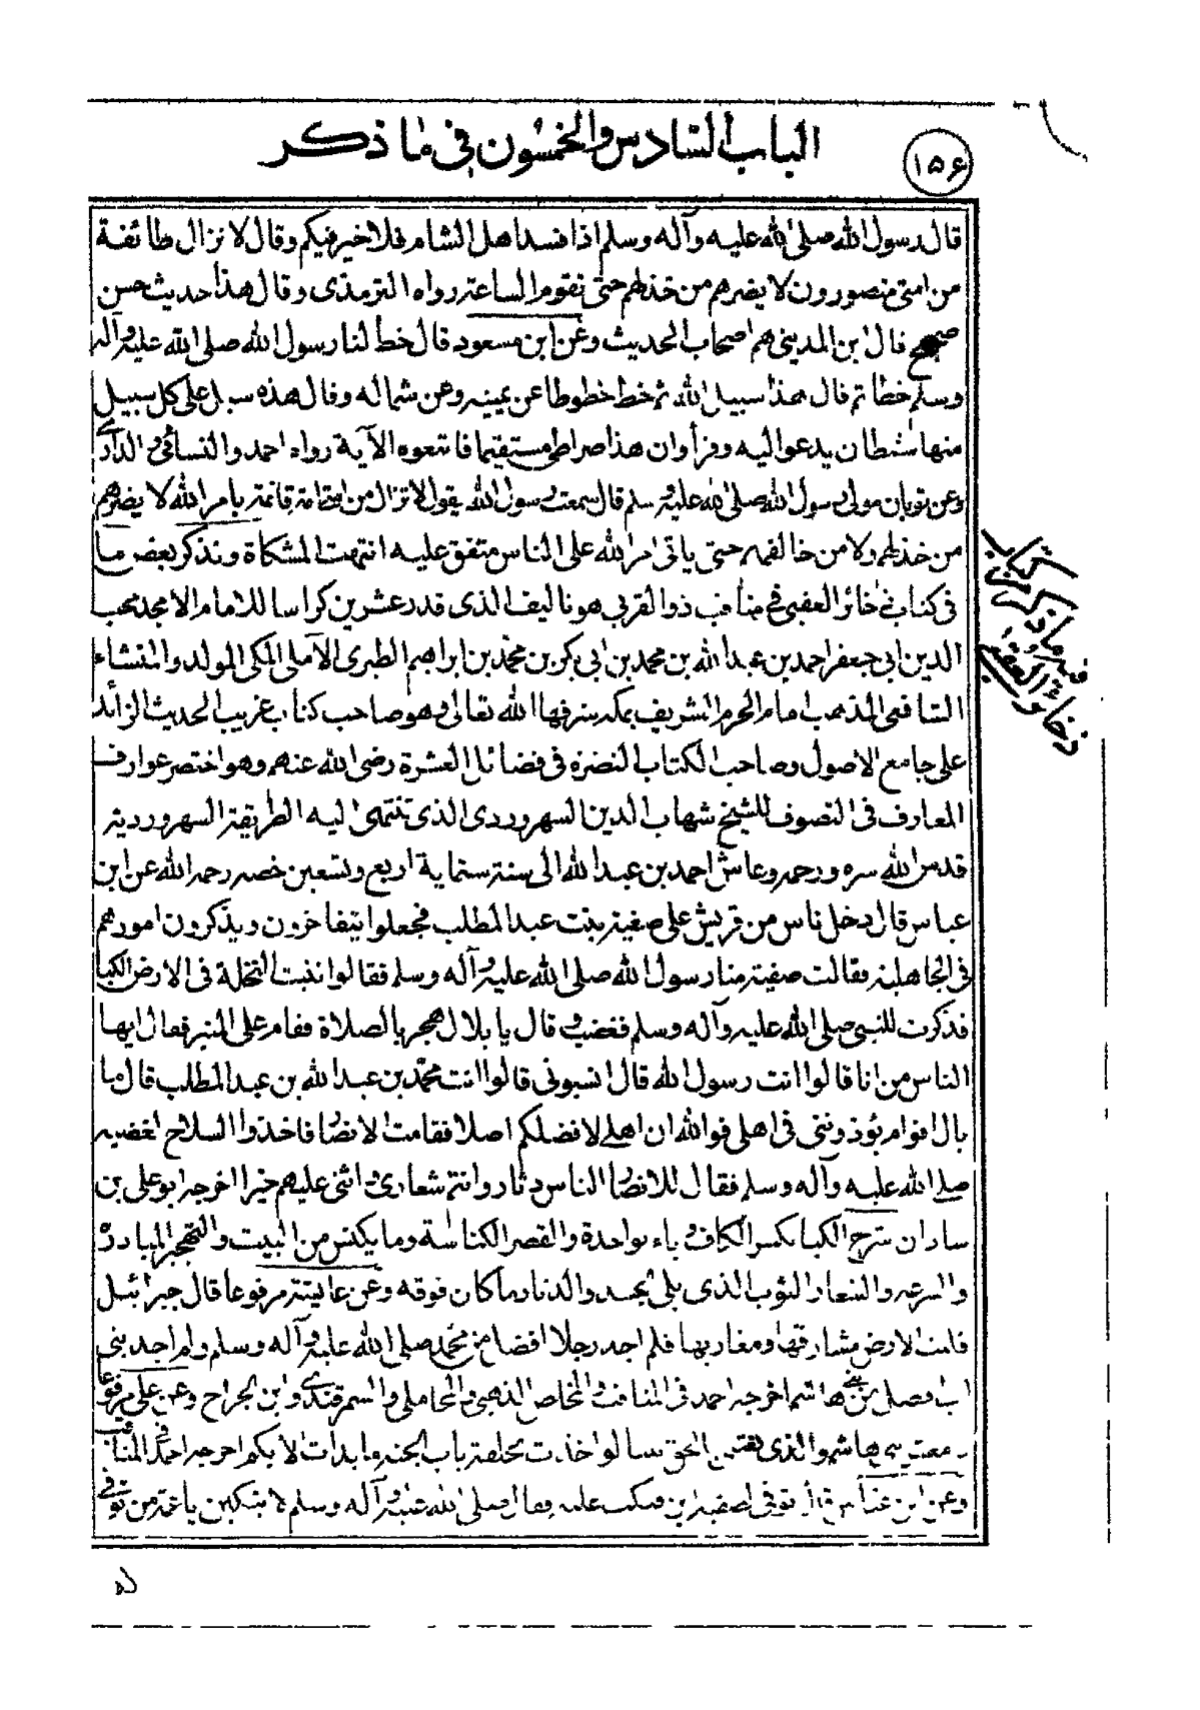 الباب السادس والخمسون في ما ذكر
١٥۶
قال رسول الله صلى الله عليه وآله وسلم اذا فسد اهل الشام فلا خير فيكم وقال لا تزال طائفة
من امتى منصورون لا يضرهم من خذلهم حتى تقوم الساعة رواه الترمذى وقال هذا حديث حسن
صحيح قال ابن المدينى هم اصحاب الحديث وعن ابن مسعود قال خط لنا رسول الله صلى الله عليه وآله
وسلم خطا ثم قال هذا سبيل الله ثم خط خطوطا عن يمينه وعن شماله وقال هذه سبل على كل سبيل
منها شيطان يدعو اليه وقرأ وان هذا صراطى مستقيما فاتبعوه الآية رواه احمد والنسائى والدارمى
وعن ثوبان مولى رسول الله صلى الله عليه وسلم قال سمعت رسول الله يقول لا تزال من امتى امة قائمة بامر الله لا يضرهم
من خذلهم ولا من خالفهم حتى ياتى امر الله على الناس متفق عليه انتهت المشكاة ونذكر بعض ما
فى كتاب ذخائر العقبى فى مناقب ذو القربى هو تاليف الذى قدر عشرين كراسا للامام الامجد محب
الدين ابى جعفر احمد بن عبد الله بن محمد بن ابى بكر بن محمد بن ابراهيم الطبرى الآملى المكى المولد والمنشاء
الشافعى المذهب امام الحرم الشريف بمكة شرفها الله تعالى وهو صاحب كتاب غريب الحديث الزائد
على جامع الاصول وصاحب الكتاب النضرة فى فضائل العشرة رضى الله عنهم وهو اختصر عوارف
المعارف فى التصوف للشيخ شهاب الدين السهروردى الذى تنتمى اليه الطريقة السهروردية
قدس الله سره ورحمه وعاش احمد بن عبد الله الى سنة ستماية اربع وتسعين خصه رحمه الله عن ابن
عباس قال دخل ناس من قريش على صفية بنت عبد المطلب فجعلوا يتفاخرون ويذكرون امورهم
فى الجاهلية فقالت صفية منا رسول الله صلى الله عليه وآله وسلم فقالوا نبتت النخلة فى الارض الكبا
فذكرت للنبى صلى الله عليه وآله وسلم فغضب قال يا بلال هجر بالصلاة فقام على المنبر فقال ايها
الناس من انا قالوا انت رسول الله قال انسبونى قالوا انت محمد بن عبد الله بن عبد المطلب قال ما
بال اقوام يؤذوننى فى اهلى فوالله ان اهلى لافضلكم اصلا فقامت الانصار فاخذوا السلاح لغضبه
صلى الله عليه وآله وسلم فقال للانصار الناس دثار وانتم شعارى واثنى عليهم خيرا اخرجه ابو على بن
شاذان شرح الكبا بكسر الكاف و باء بواحدة والقصر الكناسة وما يكنس من البيت والتهجير المبادرة
والسرعة والشعار الثوب الذى يلى الجسد والدثار ما كان فوقه وعن عايشة مرفوعا قال جبرائيل
قلبت الارض مشارقها ومغاربها فلم اجد رجلا افضل من محمد صلى الله عليه وآله وسلم ولم اجد بنى
اب افضل من بنى هاشم اخرجه احمد فى المناقب والمخلص الذهبى والمحاملى والسمرقندى وابن الجراح وعن على مرفوعا
معشر بنى هاشم والذى بعثنى بالحق نبيا لو اخذت بحلقة باب الجنة ما بدات الا بكم اخرجه احمد فى المناقب
وعن ابن عباس قال توفى لصفية ابن فبكت عليه فقال صلى الله عليه وآله وسلم لا تبكين يا عمة من توفى
له
فيه ما ذكر من كتاب
ذخائر العقبى